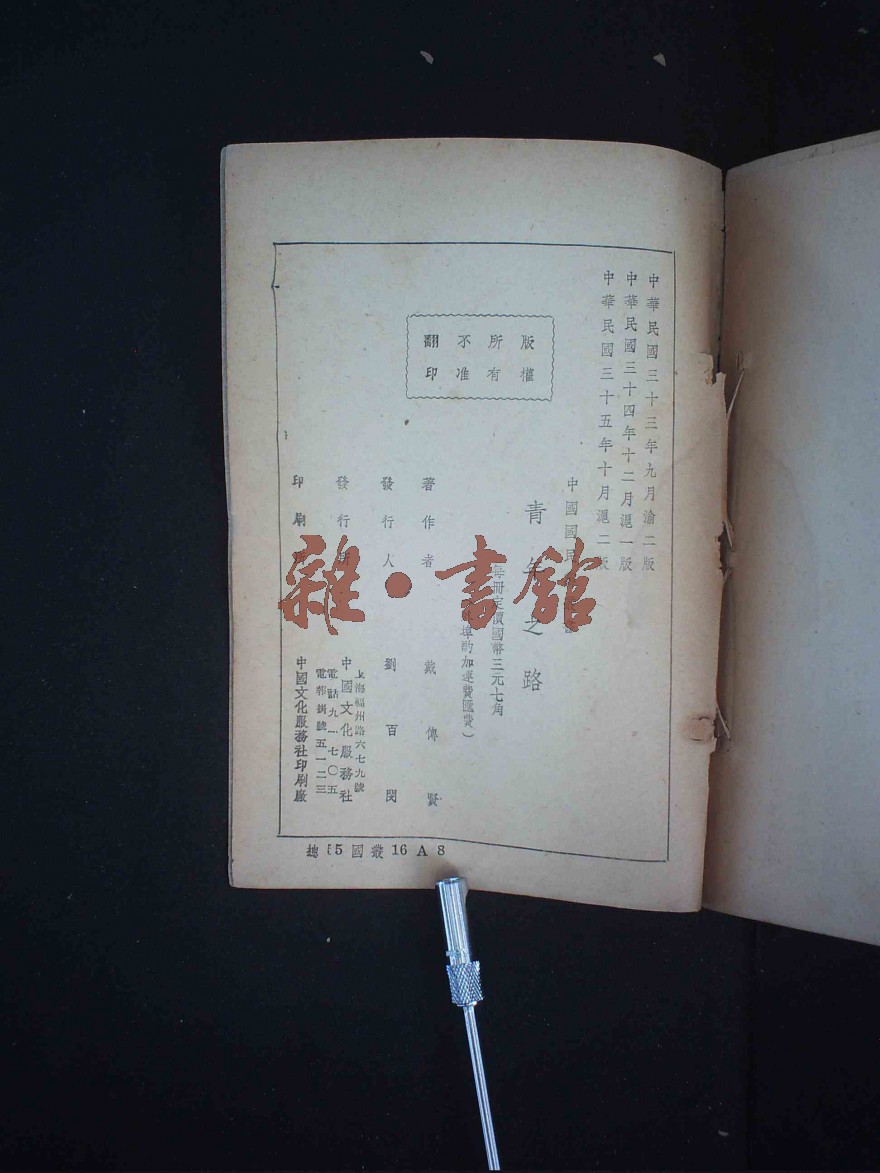 中華民國三十三年九月渝二版
中華民國三十四年十二月滬一版
中華民國三十五年十月滬二版
中國國民
青年之路
每冊定價國幣三元七角
埠酌加運費匯費）
版權
所有
不准
翻印
著作者 戴傳賢
發行人 劉百閔
發行所 中國文化服務社
上海福州路六七九號
電話九一七〇五
電報掛號五一二三
印刷 中國文化服務社印刷廠
總 5 國叢 16 A 8
雜·書館